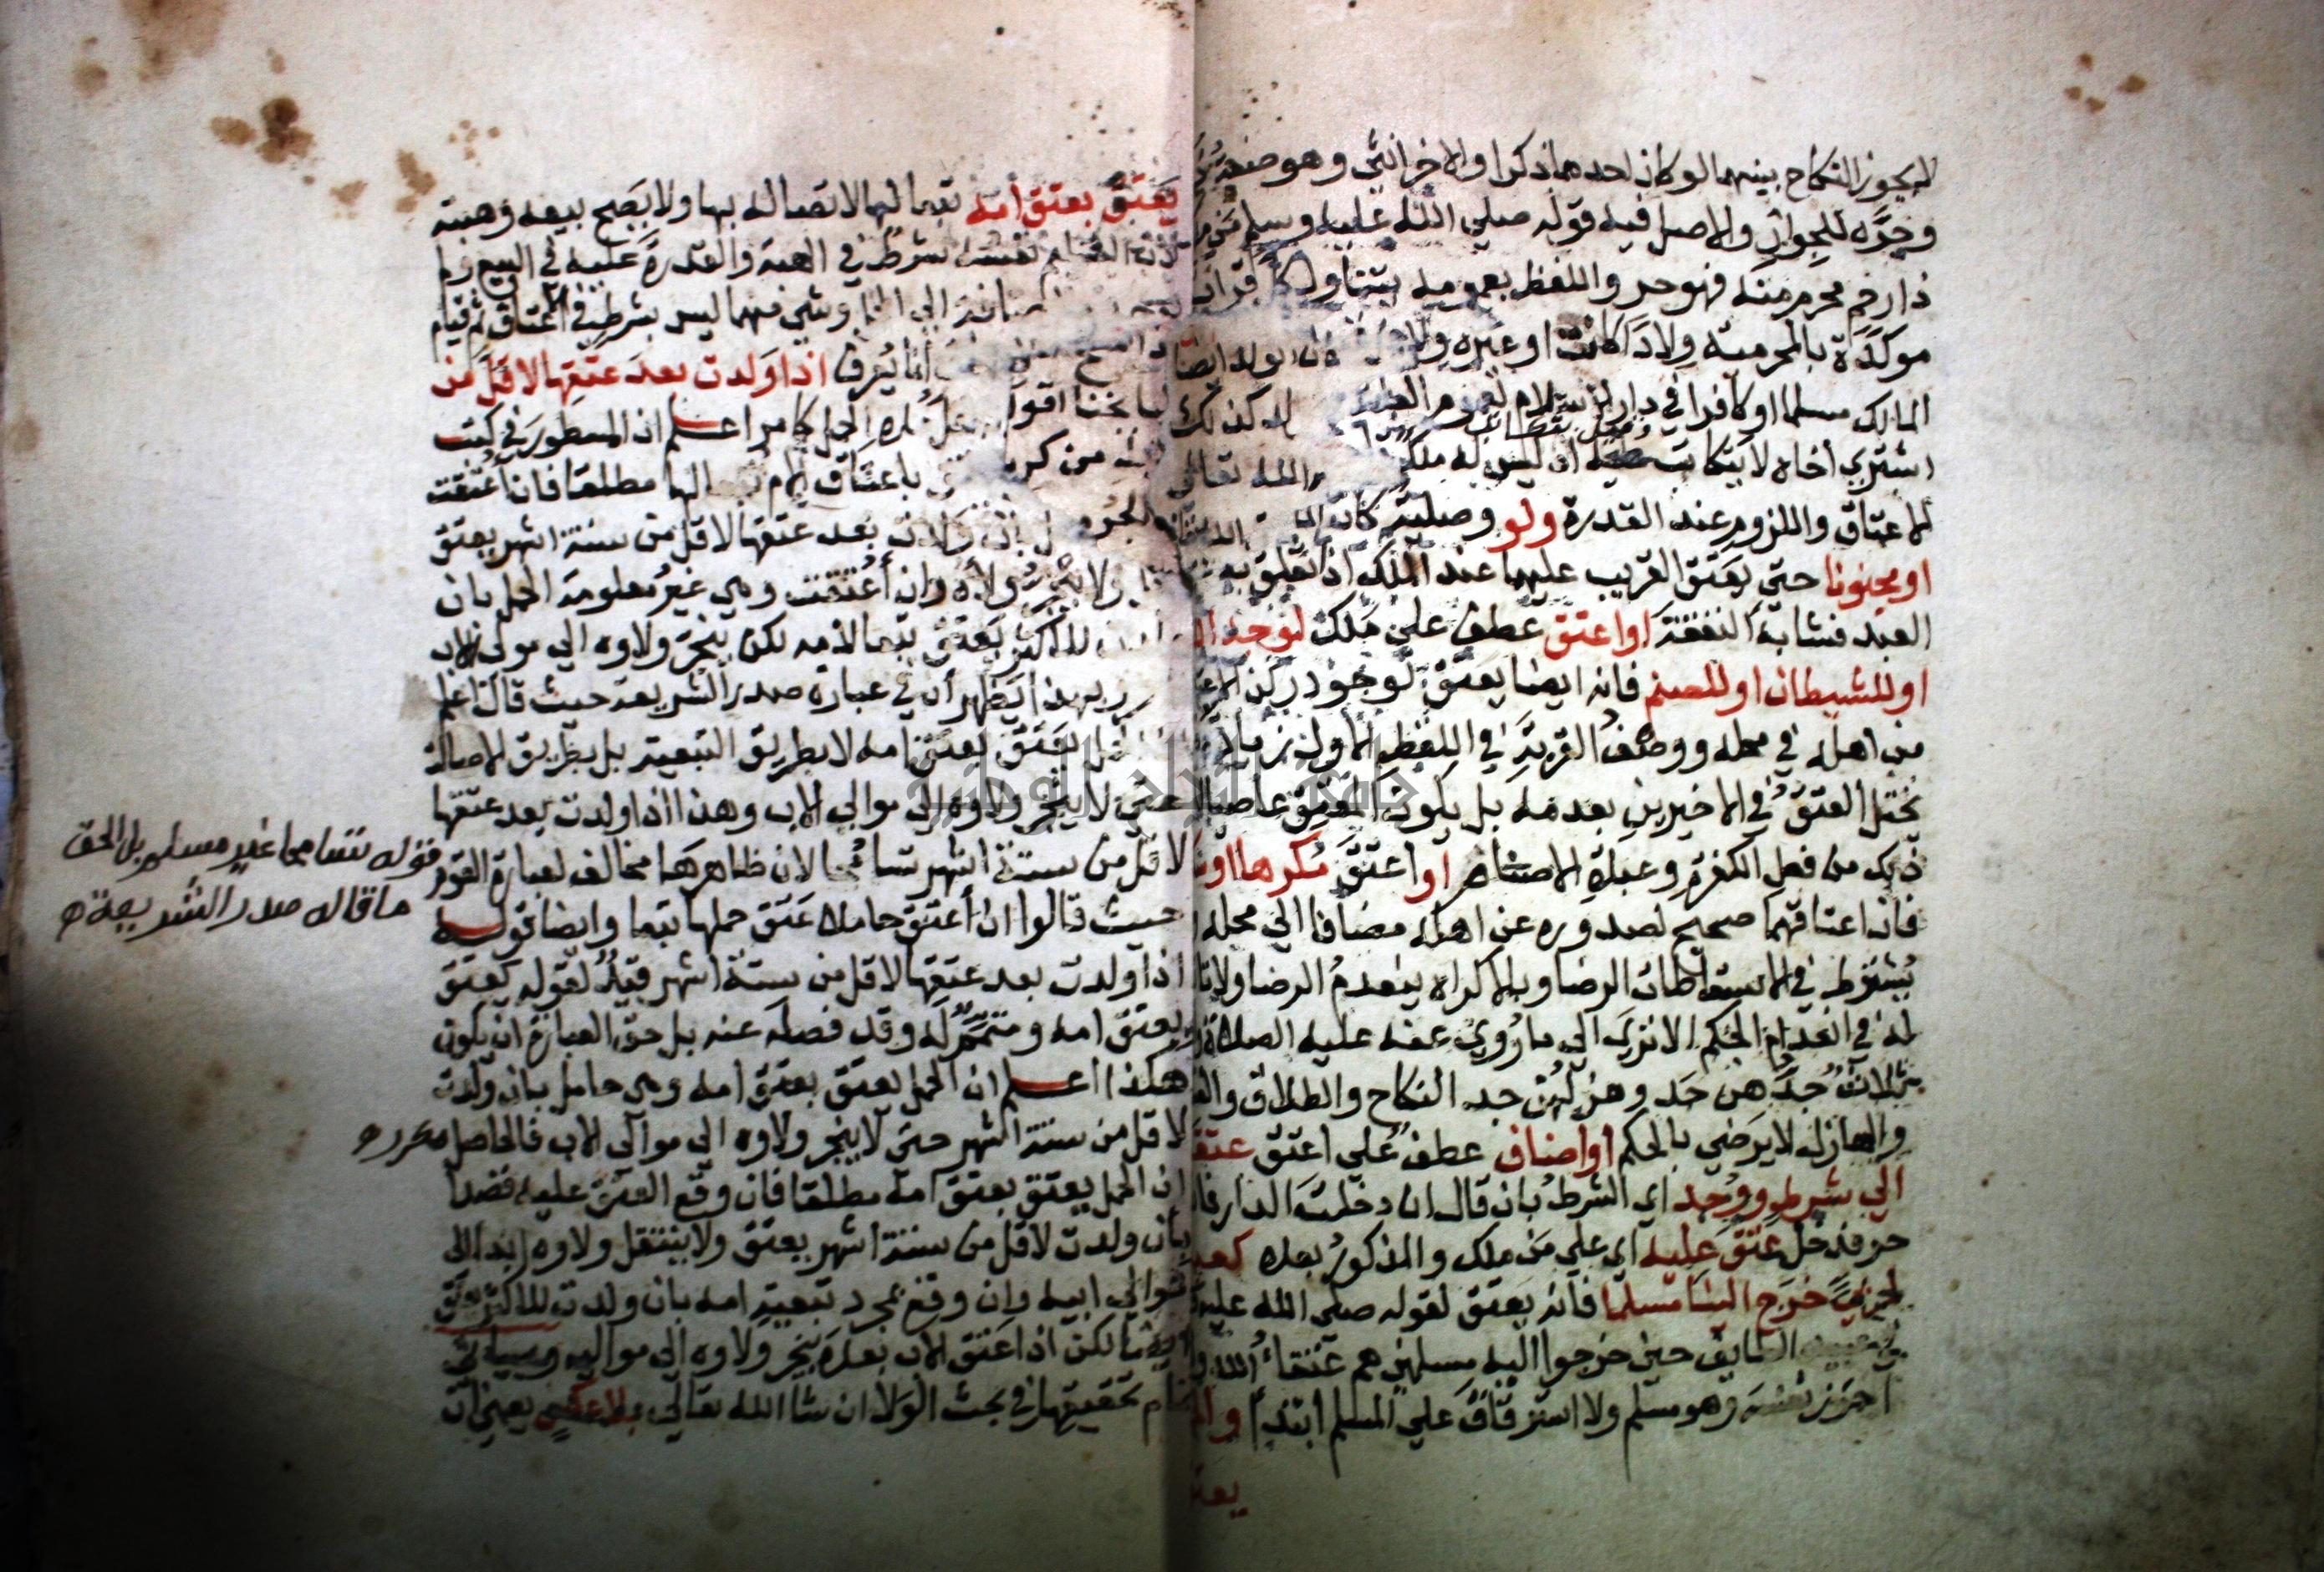 لا يجوز النكاح بينهما لو كان احدهما ذكرا والاخر انثي وهو صفة
وجره للجوار والاصل فيه قوله صلي الله عليه وسلم من
ذا رحم محرم منه فهو حر واللفظ بعمومه يتناول كل قرابة
موكدة بالمحرمية ولادا كانت او غيره
المالك مسلما او كافرا في دار الاسلام لعموم العلة
اشتري اخاه لا يتكاتب عليه اذ ليس له ملك
الاعتاق واللزوم عند القدرة ولو وصلية كان المالك
او مجنونا حتي يعتق القريب عليهما عند الملك اذ تعلق به
العبد فشابه النفقة او اعتق عطف علي ملك لوجه الله
او للشيطان او للصنم فانه ايضا يعتق لوجود ركن الاعتاق
من اهله في محله ووصف القربة في اللفظ الاول زيادة
يختل العتق في الاخيرين بعدمه بل يكون المعتق عاصيا
ذلك من فعل الكفرة وعبدة الاصنام او اعتق مكرها او
فان اعتاقهما صحيح لصدوره عن اهله مضافا الي محله
يشترط في الاسقاطات الرضا وبالاكراه ينعدم الرضا ولا
له في انعدام الحكم الا تري الي ما روي عنه عليه الصلاة
ثلاث جدهن جد وهزلهن جد النكاح والطلاق
والهازل لا يرضي بالحكم او اضاف عطف علي اعتق عتقه
الي شرط ووجد اي الشرط بان قال ان دخلت الدار
حر فدخل عتق عليه اي علي من ملك والمذكور بعده كعبد
لحربي خرج الينا مسلما فانه يعتق لقوله صلي الله عليه
في عبيد الطايف حين خرجوا اليه مسلمين هم عتقاء الله
احرز نفسه وهو مسلم ولا استرقاق علي المسلم ابتداء
يعتق بعتق امه تبعا لها لاتصاله بها ولا يصح بيعه وهبته
نفسه شرط في الهبة والقدرة عليه في البيع
وشي منهما ليس بشرط في الاعتاق ثم قيام
انما يعرف اذا ولدت بعد عتقها لاقل من
الحمل كما مر اعلم ان المسطور في كتب
باعتاق الام مطلقا فان اعتقت
ولدت بعد عتقها لاقل من ستة اشهر يعتق
ولا ينجر ولاه وان اعتقت وهي غير معلومة الحمل بان
للاكثر يعتق تبعا لامه لكن ينجر ولاوه الي مولي الاب
وبهذا يظهر ان في عبارة صدر الشريعة حيث قال اعلم
يعتق بعتق امه لا بطريق التبعية بل بطريق الاصالة
حتي لا ينجر ولاوه الي موالي الاب وهذا اذا ولدت بعد عتقها
لاقل من ستة اشهر تسامحا لان ظاهرها مخالف لعبارة القوم
حيث قالوا ان اعتق حاملا عتق حملها تبعا وايضا قوله
اذا ولدت بعد عتقها لاقل من ستة اشهر قيد لقوله يعتق
بعتق امه ومتمم له وقد فصله عنه بل حق العبارة ان يكون
هكذا اعلم ان الحمل يعتق بعتق امه وهي حامل بان ولدت
لاقل من ستة اشهر حتي لا ينجر ولاوه الي موالي الاب فالحاصل
ان الحمل يعتق بعتق امه مطلقا فان وقع العتق عليه قصدا
بان ولدت لاقل من ستة اشهر يعتق ولا ينتقل ولاوه ابدا الي
موالي ابيه وان وقع بمجرد تبعية امه بان ولدت للاكثر يعتق
ايضا لكن اذا عتق الاب بعده ينجر ولاوه الي مواليه وسياتي
تمام تحقيقها في بحث الولا ان شا الله تعالي بلا عكس يعني ان
قوله تسامحا غير مسلم بل الحق
ما قاله صدر الشريعة